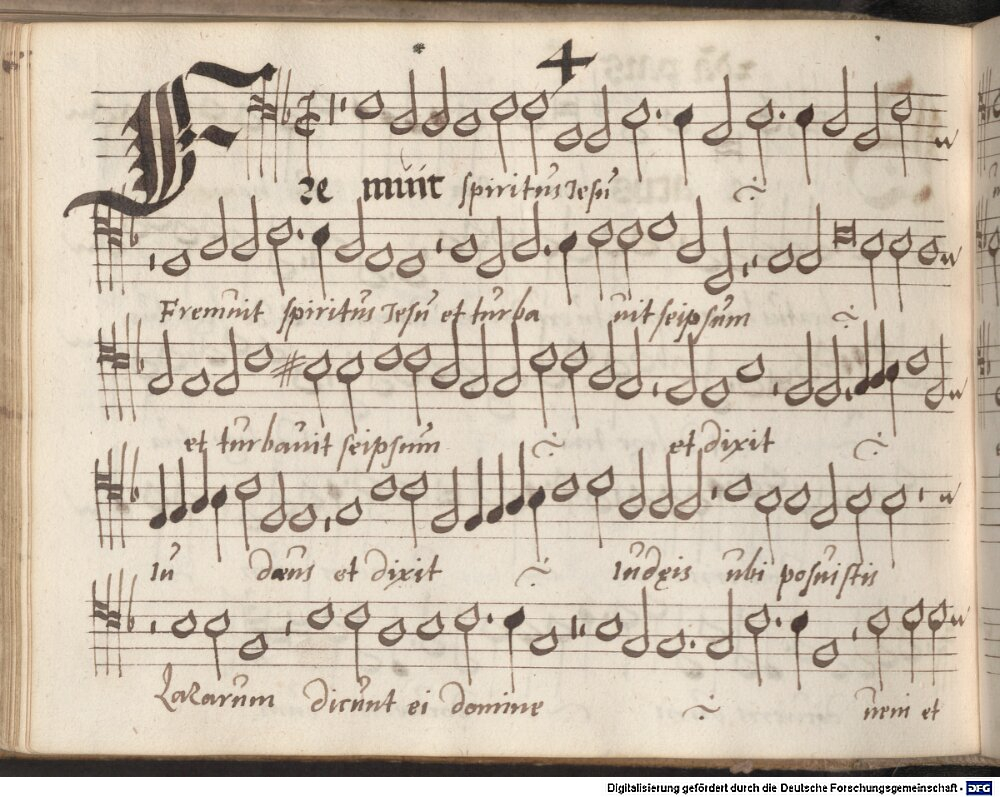 4
Fremuit spiritus Jesu
Fremuit spiritus Jesu et turba uit seipsum
et turbauit seipsum et dixit
Iu dæus et dixit Iudęis ubi posuistis
Lazarum dicunt ei domine ueni et
Digitalisierung gefördert durch die Deutsche Forschungsgemeinschaft - DFG